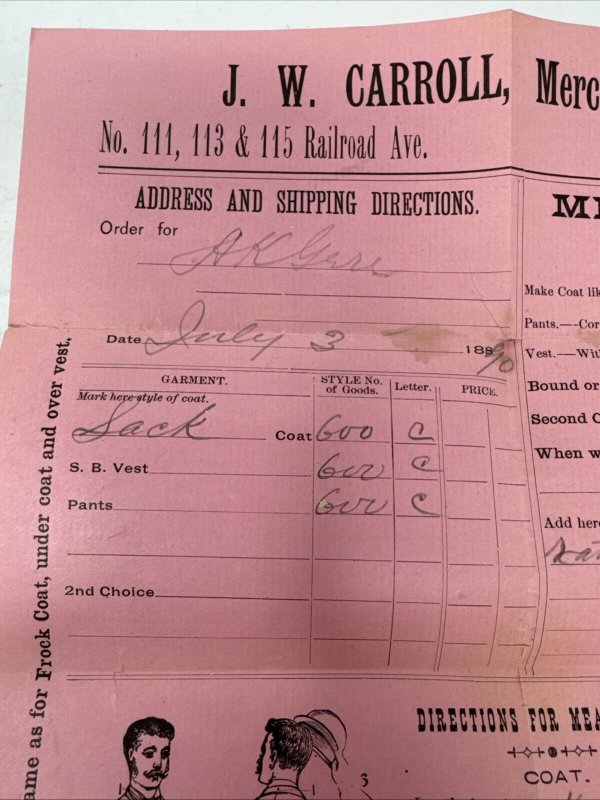 J. W. CARROLL, Merc
No. 111, 113 & 115 Railroad Ave.
ADDRESS AND SHIPPING DIRECTIONS.
Order for A K
Date July 3 189
GARMENT. STYLE No. of Goods. Letter. PRICE.
Mark here style of coat.
Sack Coat 600 C
S. B. Vest 600 C
Pants 600 C
2nd Choice
ame as for Frock Coat, under coat and over vest,
Make Coat lik
Pants.--Cor
Vest.--Wit
Bound or
Second C
When w
Add here
DIRECTIONS FOR MEA
COAT.
1
3